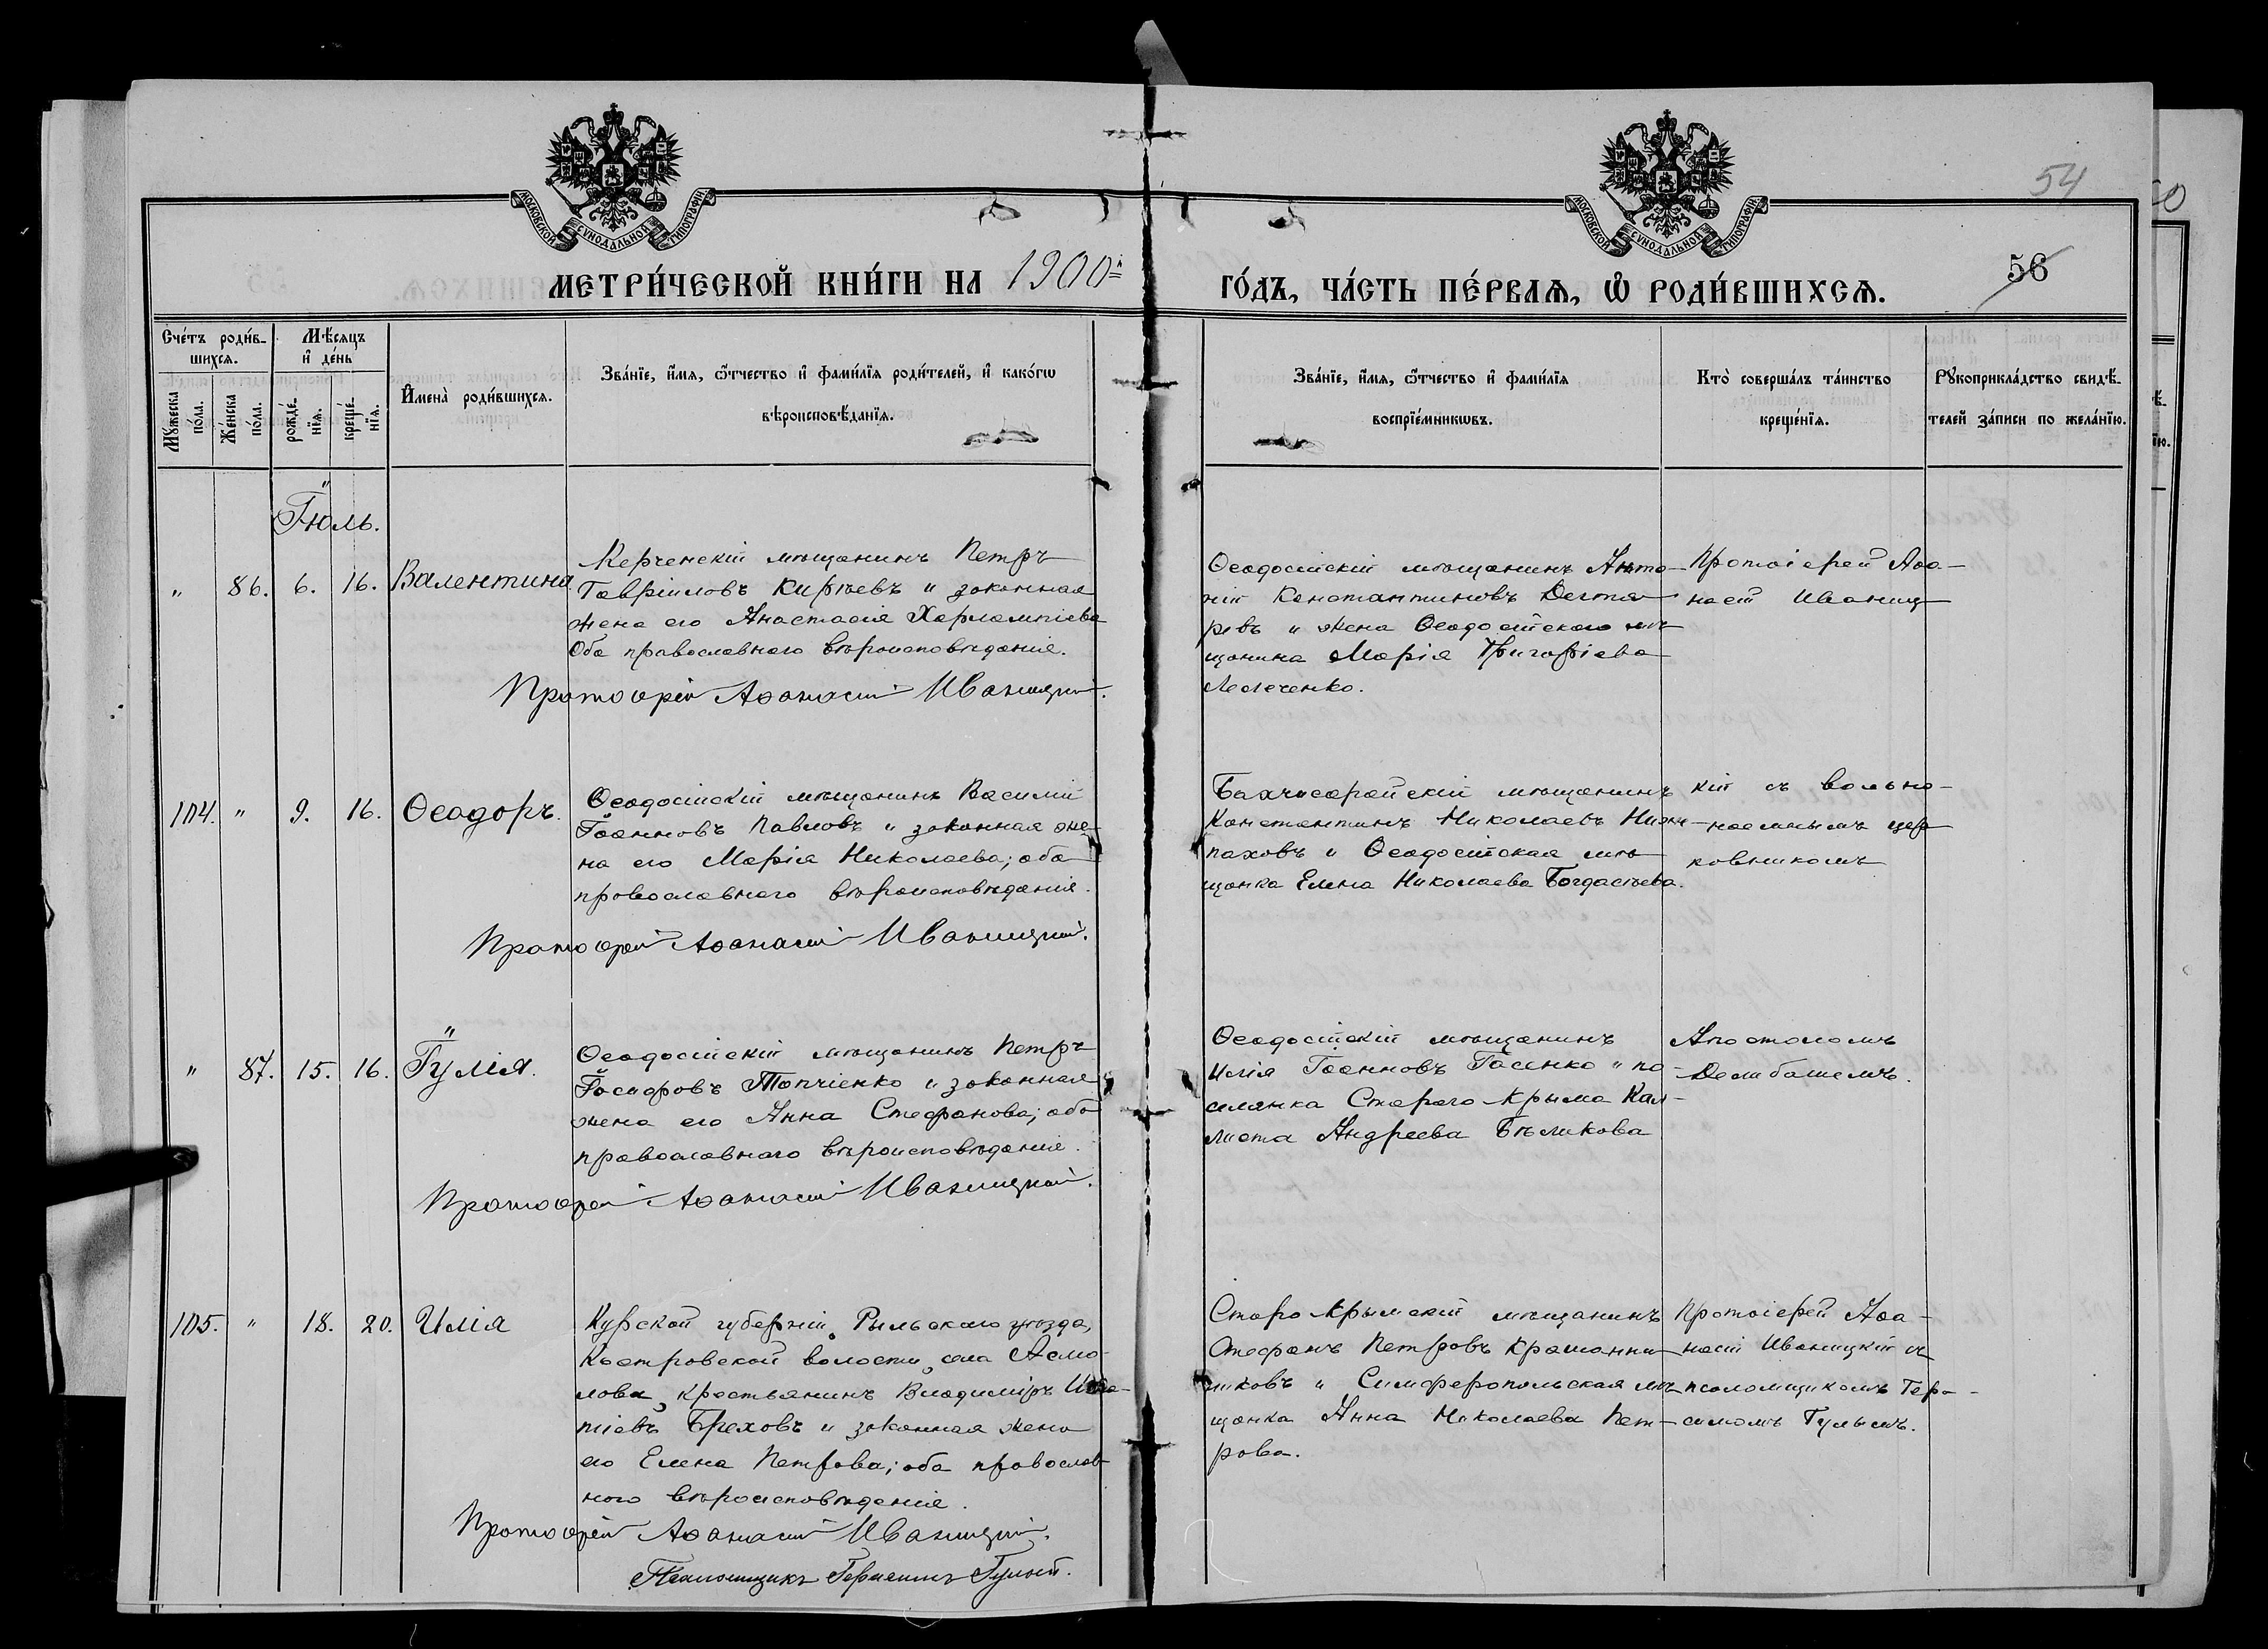 МОСКОВСКОЙ СѴНОДАЛЬНОЙ ТИПОГРАФІИ
МОСКОВСКОЙ СѴНОДАЛЬНОЙ ТИПОГРАФІИ
54
56
МЕТРИ́ЧЕСКОЙ КНИ́ГИ НА 1900й
ГО́ДЪ, ЧА́СТЬ ПЕ́РВАѦ, Ѡ РОДИ́ВШИХСѦ.
Сче́тъ роди́в-
шихсѧ.
Мѣ́сѧцъ
и҆ де́нь
Мꙋ́жеска по́ла.
Же́нска по́ла.
рожде́-
нїѧ.
креще́-
нїѧ.
И҆мена̀ роди́вшихсѧ.
Зва́нїе, и҆́мѧ, ѻ҆́тчество и҆ фами́лїѧ роди́телей, и҆ како́гѡ
вѣроисповѣ́данїѧ.
Зва́нїе, и҆́мѧ, ѻ҆́тчество и҆ фами́лїѧ
воспрїе́мникѡвъ.
Кто̀ соверша́лъ та́инство
креще́нїѧ.
Рꙋкоприкла́дство свидѣ́-
телей за́писи по жела́нїю.
Іюль.
" 86. 6. 16. Валентина
Керченскій мѣщанинъ Петръ
Гавріиловъ Кирѣевъ и законная
жена его Анастасія Харлампіева
Оба православнаго вѣроисповѣданія.
Протоіерей Аѳанасій Иваницкій.
Ѳеодосійскій мѣщанинъ Анто-
ній Константиновъ Дегтя-
ревъ и жена Ѳеодосійского мѣ-
щанина Марія Григоріева
Лелеченко.
Протоіерей Аѳа-
насій Иваниц
104. " 9. 16. Ѳеодоръ.
Ѳеодосійскій мѣщанинъ Василій
Іоанновъ Павловъ и законная же-
на его Марія Николаева; оба
православнаго вѣроисповѣданія.
Протоіерей Аѳанасій Иваницкій.
Бахчисарайскій мѣщанинъ
Константинъ Николаевъ
паховъ и Ѳеодосійская мѣ-
щанка Елена Николаева Богдасъева.
кій съ вольно-
наемнымъ цер-
ковникомъ
" 87. 15. 16. Іулія.
Ѳеодосійскій мѣщанинъ Петръ
Іосифовъ Топчіенко и законная
жена его Анна Стефанова; оба
православнаго вѣроисповѣданія.
Протоіерей Аѳанасій Иваницкій.
Ѳеодосійскій мѣщанинъ
Илія Іоанновъ Гасенко и по-
селянка Стараго Крыма Кал-
листа Андреева Бѣликова
Апостоломъ
Делибашемъ.
105. " 18. 20. Илія
Курской губерніи, Рыльскаго уѣзда,
Костровской волости, села Асмо-
лова, крестьянинъ Владиміръ
піевъ Бреховъ и законная жена
его Елена Петрова; оба православ-
наго вѣроисповѣданія.
Протоіерей Аѳанасій Иваницкій.
Псаломщикъ Герасимъ Гулый.
Старокрымскій мѣщанинъ
Стефанъ Петровъ Крашанни-
никовъ и Симферопольская мѣ-
щанка Анна Николаева Пет-
рова.
Протоіерей Аѳа-
насій Иваницкій съ
псаломщикомъ Гера-
симомъ Гулымъ.